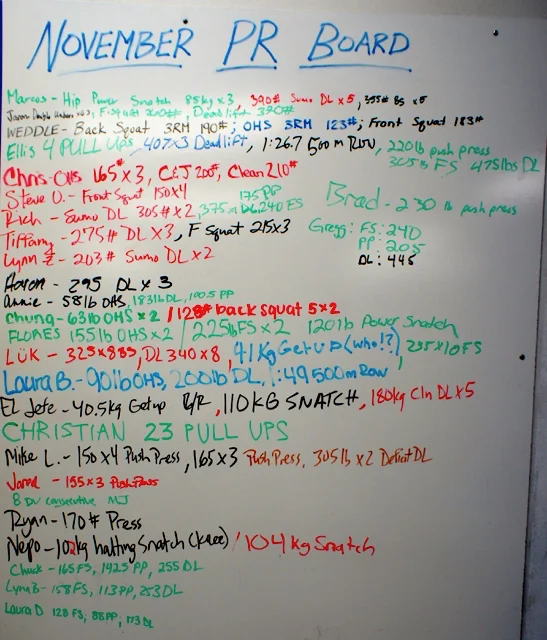 NOVEMBER PR BOARD
Marcos - Hip Power Snatch 85kg x 3, 390# Sumo DL x 5, 355# BS x5
Jason Double Unders 63, F. Squat 200#, Deadlift 320#
WEDDLE - Back Squat 3RM 190#; OHS 3RM 123#; Front Squat 183#
Ellis 4 PULL UPs, 407x3 Deadlift, 1:26.7 500m Row, 220lb push press
305lb FS 475lbs DL
Chris - OHS 165# x 3, C&J 205#, Clean 210#
Steve O. - Front Squat 150x4 175 PP
Rich - Sumo DL 305# x 2, 375 240 FS
Brad - 230 lb push press
Tiffany - 275# DL x 3, F Squat 215x3
Gregg: FS: 240
PP: 205
DL: 445
Lynn Z - 203# Sumo DL x 2
Aaron - 295 DL x 3
Annie - 58lb OHS, 183lb DL, 100.5 PP
Chung - 63lb OHS x 2 / 128# back squat 5x2
FLORES 155lb OHS x 2 / 225lb FS x 2 120lb Power Snatch
LÜK - 325x8BS, DL 340x8, 41kg Get UP (who!?), 235x10FS
Laura B. - 90lb OHS, 200lb DL, 1:49 500m Row
EL Jefe - 40.5kg Getup R/R, 110KG SNATCH, 180kg Cln DL x 5
CHRISTIAN 23 PULL UPS
Mike L. - 150x4 Push Press, 165x3 Push Press, 305lb x 2 Deficit DL
Jared - 155x3 Push Press
8 DU consecutive MJ
Ryan - 170# Press
Nepo - 102kg halting Snatch (knee) / 104kg Snatch
Chuck - 165FS, 142.5 PP, 255 DL
Lyna B - 158FS, 113PP, 253DL
Laura D 128 FS, 88PP, 173 DL